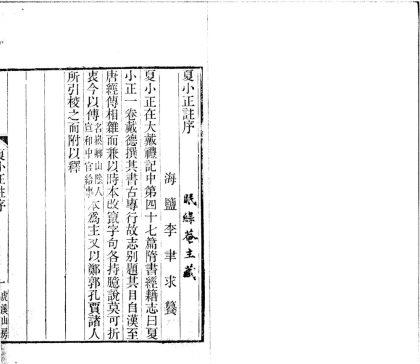 夏小正註序
海鹽李聿求纂
夏小正在大戴禮記中第四十七篇隋書經籍志曰夏
小正一卷戴德撰其書古專行故志別題其目自漢至
唐經傳相雜而兼以時本改竄字句各持臆說莫可折
衷今以傳崧卿山陰人宣和中官給事本爲主又以鄭郭孔賈諸人
所引校之而附以釋
夏小正註序
一
虎溪山房
眠綠菴主藏